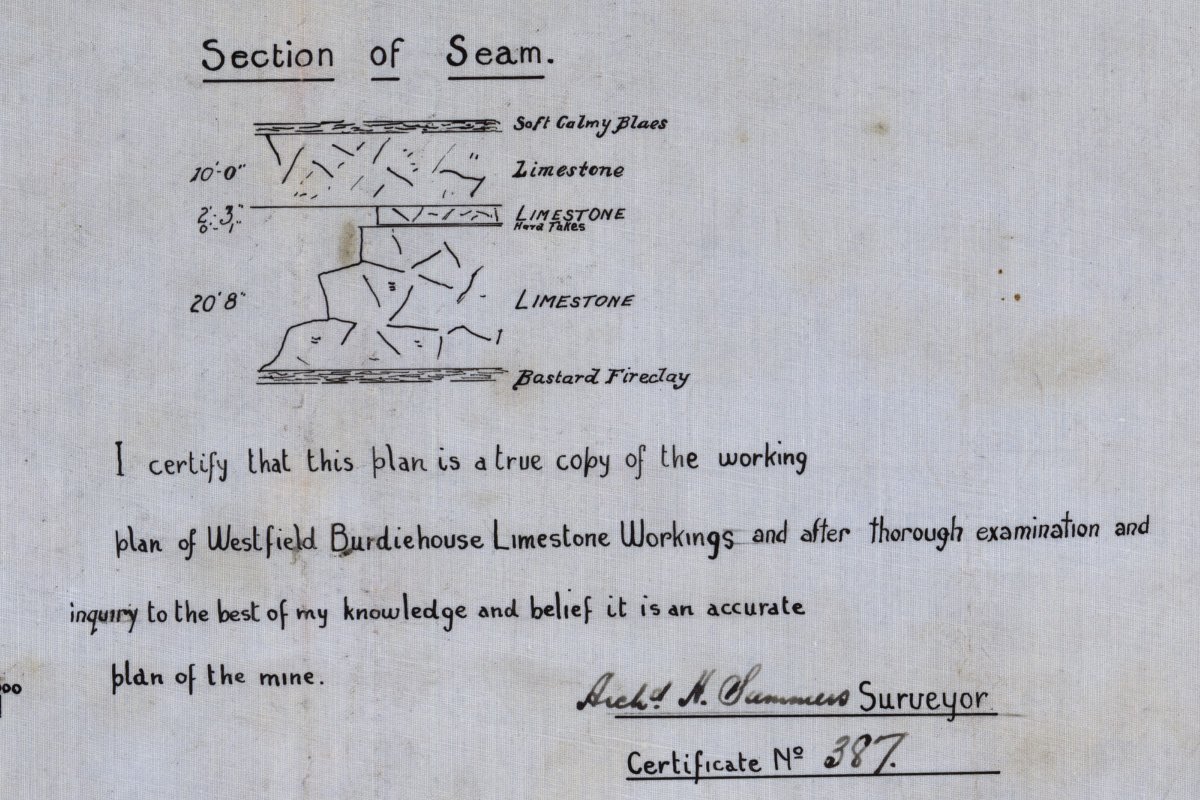 Section of Seam.
Soft Calmy Blaes
10'-0" Limestone
2'-3" LIMESTONE
0'-1" Hard Fakes
20'8" LIMESTONE
Bastard Fireclay
I certify that this plan is a true copy of the working
plan of Westfield Burdiehouse Limestone Workings and after thorough examination and
inquiry to the best of my knowledge and belief it is an accurate
plan of the mine.
Archd. H. Summers Surveyor.
Certificate No 387.